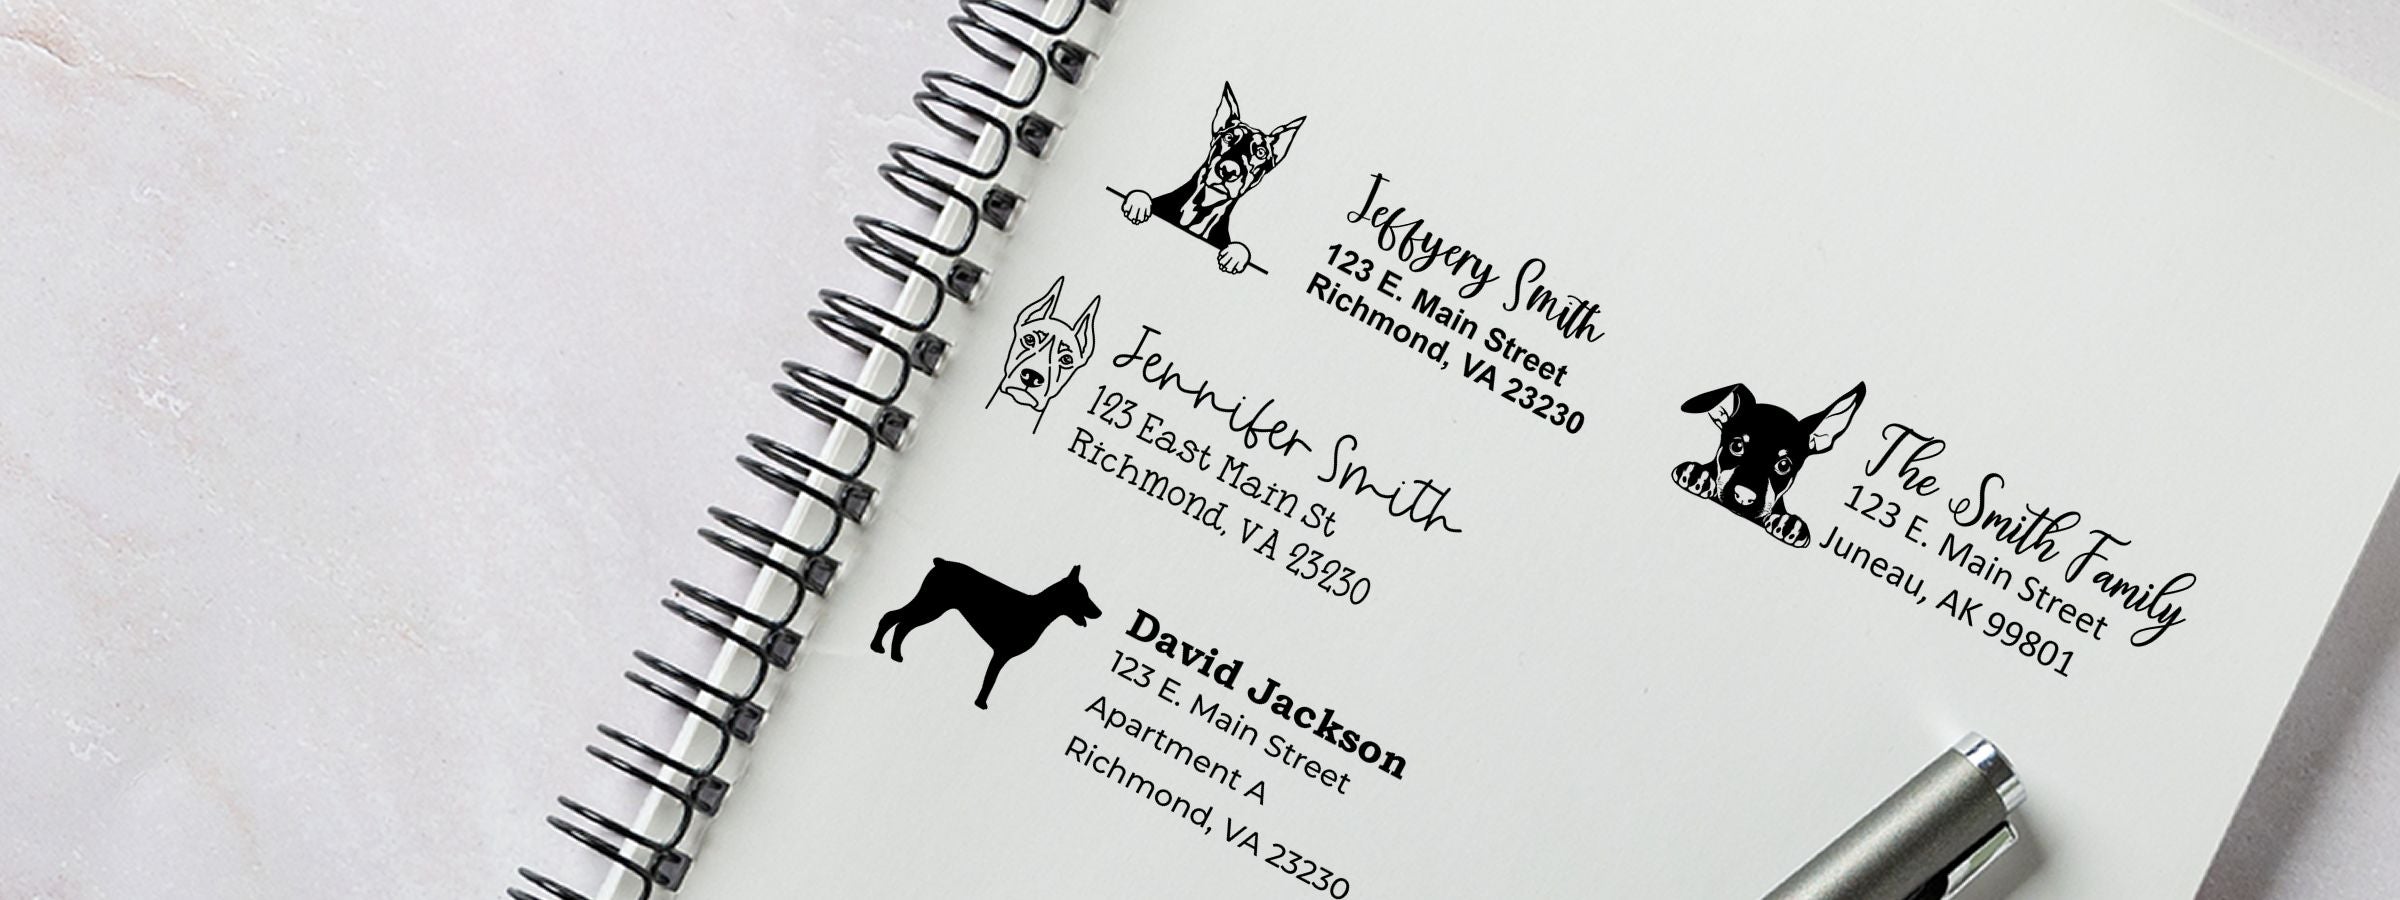 Jeffyery Smith
123 E. Main Street
Richmond, VA 23230
Jennifer Smith
123 East Main St
Richmond, VA 23230
David Jackson
123 E. Main Street
Apartment A
Richmond, VA 23230
The Smith Family
123 E. Main Street
Juneau, AK 99801